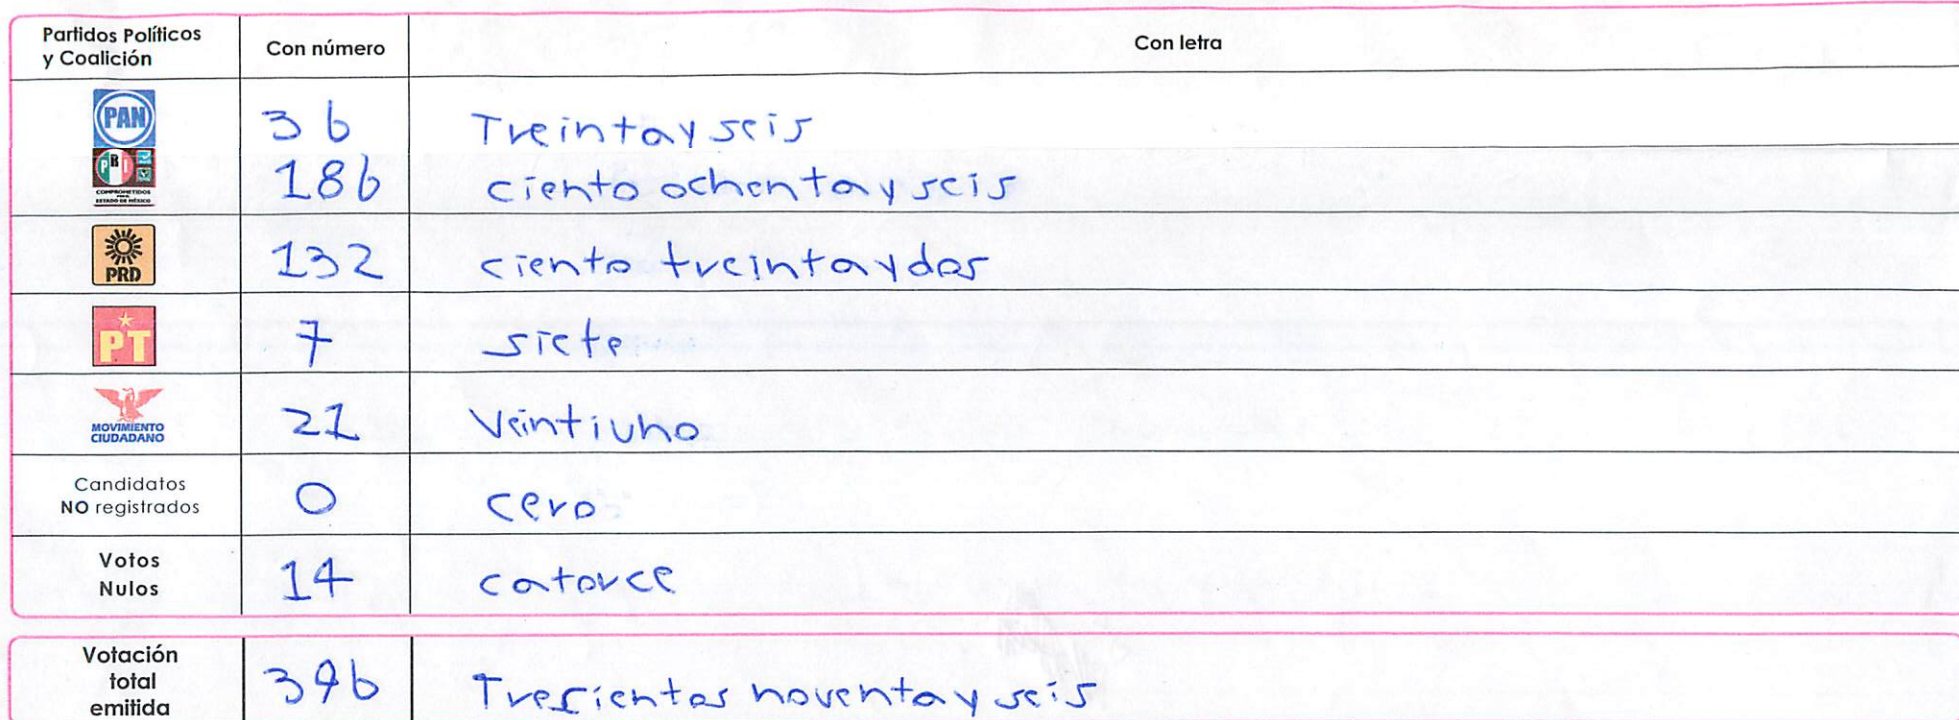 Partidos Políticos y Coalición Con número Con letra
PAN 36 Treinta y seis
PRI COMPROMETIDOS ESTADO DE MÉXICO 186 ciento ochenta y seis
PRD 132 ciento treinta y dos
PT 7 siete
MOVIMIENTO CIUDADANO 21 Veintiuno
Candidatos NO registrados 0 cero
Votos Nulos 14 catorce
Votación total emitida 396 Trescientos noventa y seis